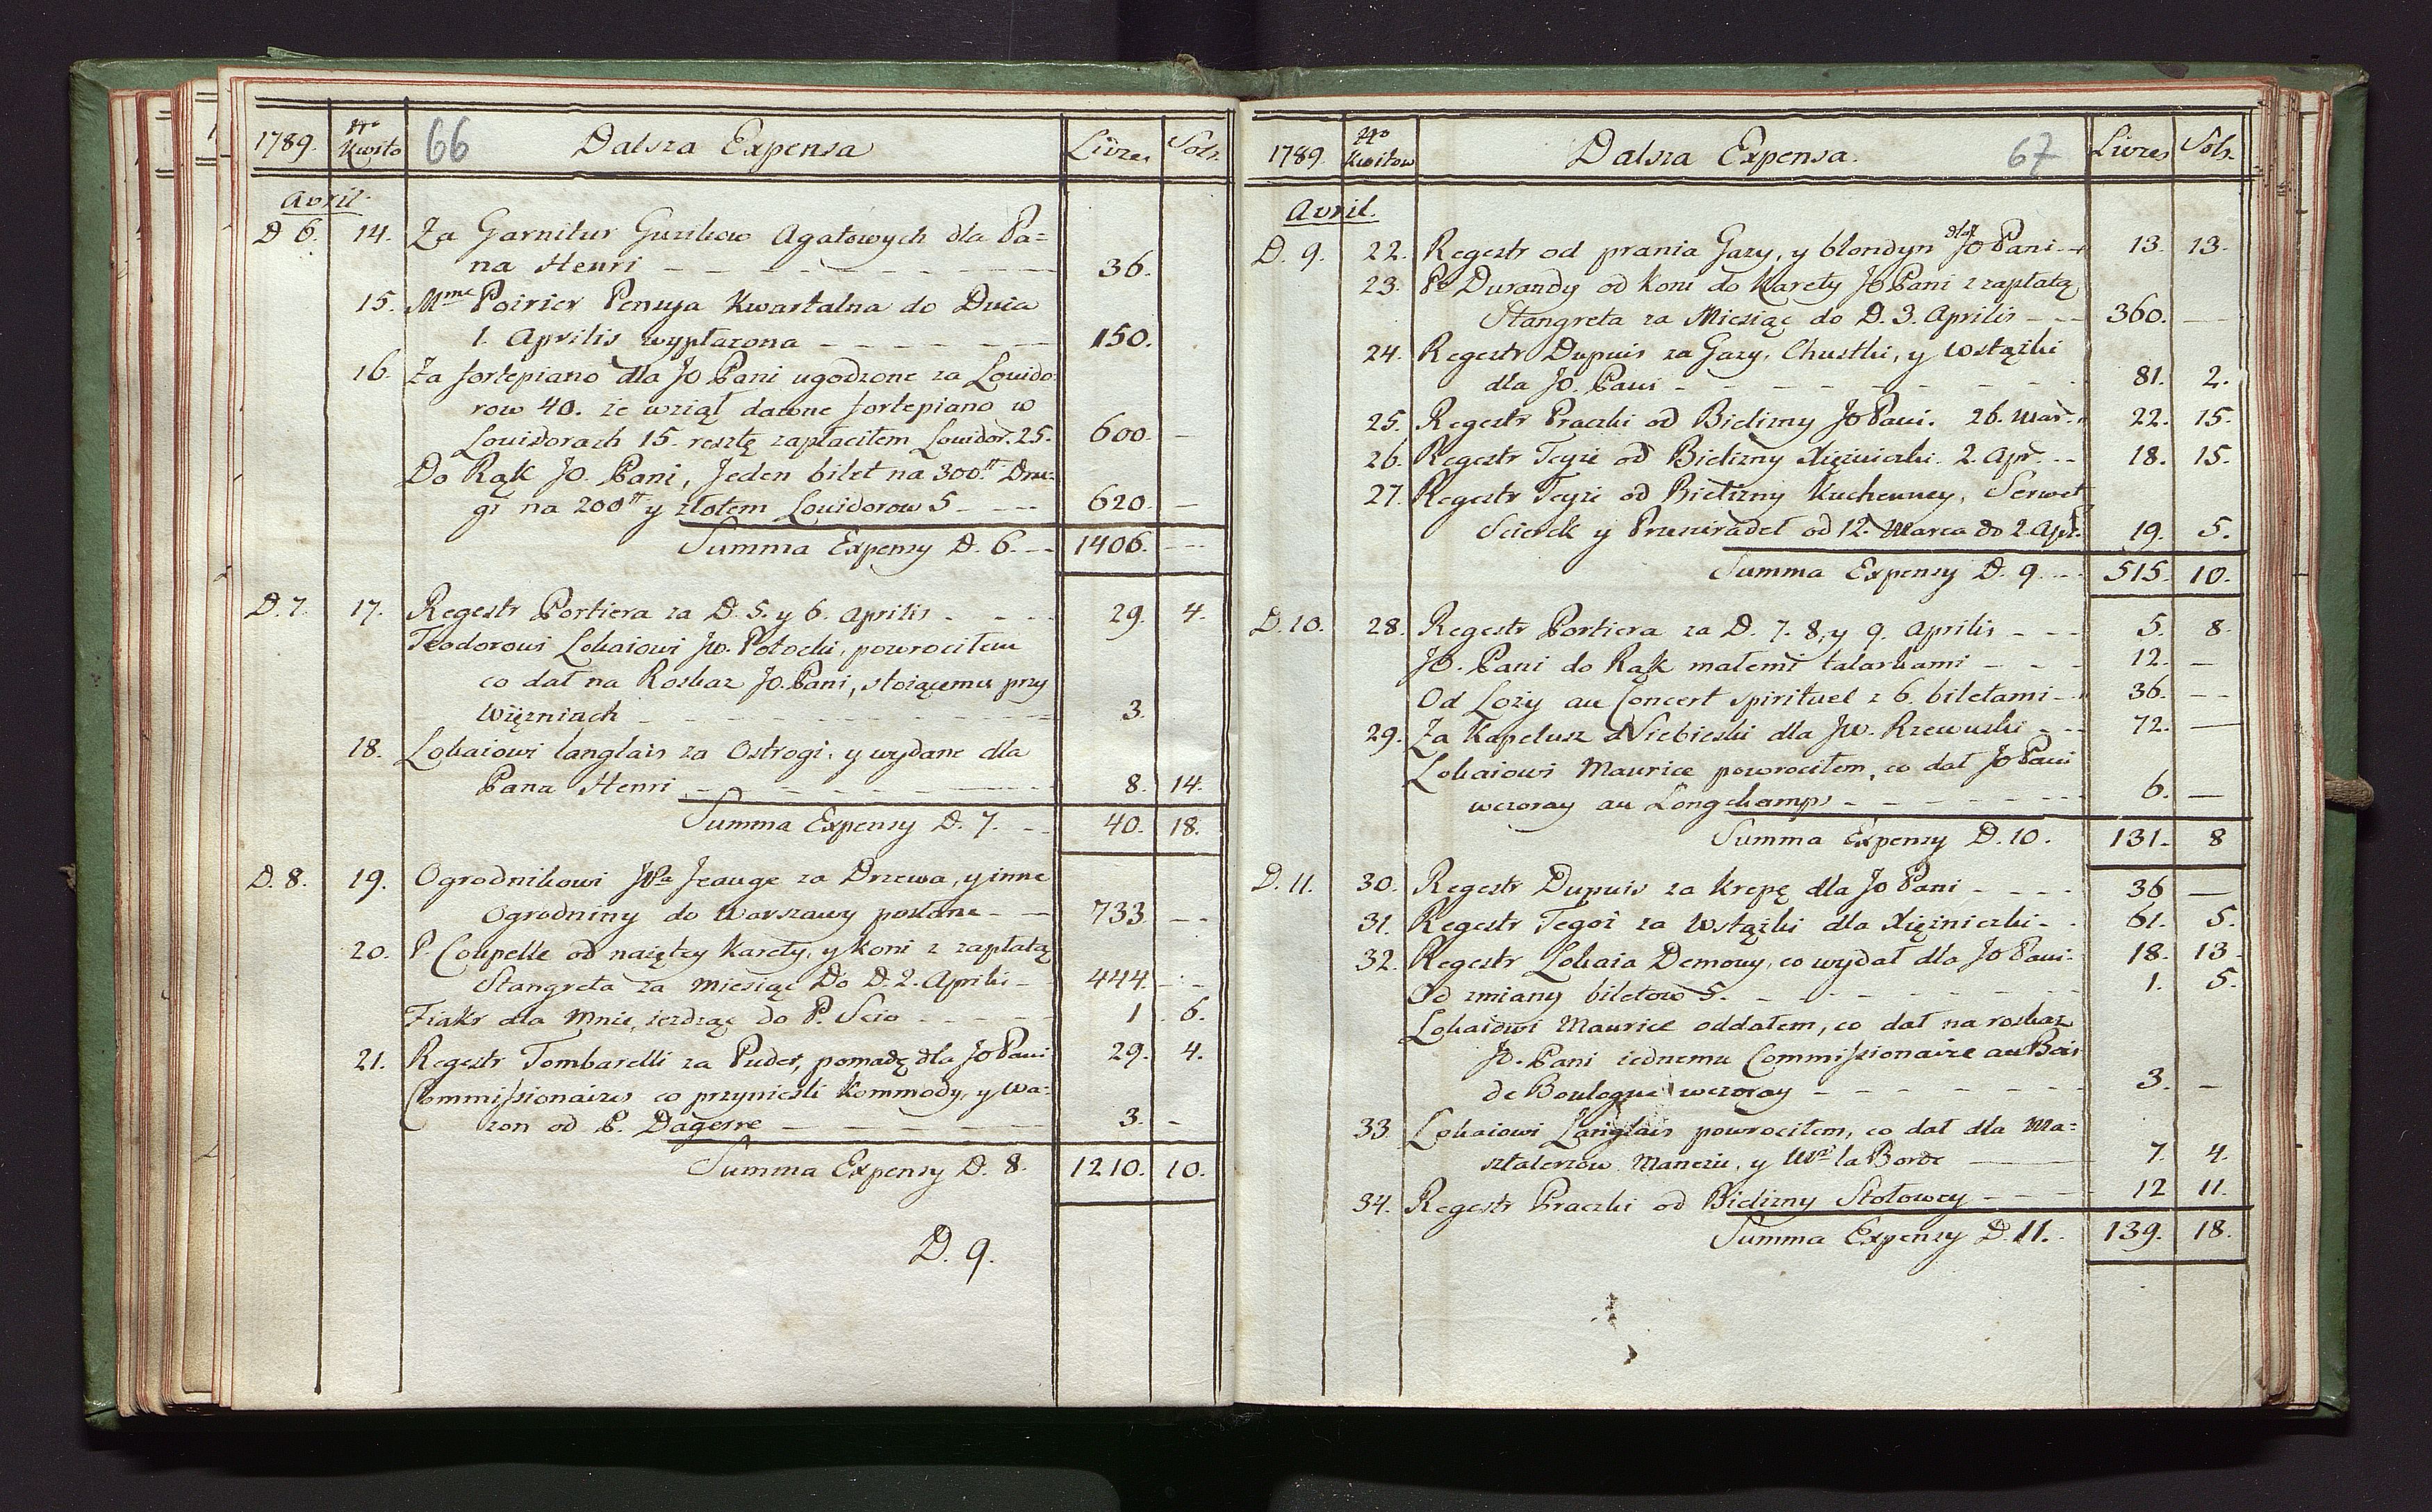 1789. No Kwito 66 Dalsza Expensa Livres Sols.
Avril.
D 6. 14. Za Garnitur Guzikow Agatowych dla Pa=
na Henri 36.
15. Mme Poirier Pensya Kwartalna do Dnia
1. Aprilis wypłazona 150.
16. Za fortepiano dla JO Pani ugodzone za Louido
row 40. że wziął dawne fortepiano w
Louidorach 15. resztę zapłaciłem Louidor. 25. 600. —
Do Rąk JO. Pani, Jeden bilet na 300tt Dru=
gi na 200tt y złotem Louidorow 5 620. —
Summa Expensy D. 6. 1406. —
D. 7. 17. Regestr Portiera za D. 5. y 6. Aprilis 29. 4.
Teodorowi Lokaiowi JW. Potocki, powrociłem
co dał na Roskaz JO. Pani, stoiącemu przy
Więzniach 3.
18. Lokaiowi Langlais za Ostrogi, y wydane dla
Pana Henri 8. 14.
Summa Expensy D. 7. 40. 18.
D. 8. 19. Ogrodnikowi Jeauge za Drzewa, y inne
Ogrodniny do Warszawy posłane 733. —
20. P. Coupelle od naiętey Karety, y koni z zapłatą
Stangreta za Miesiąc Do D. 2. Aprilis 444. —
Fiakr dla Mnie, ieżdząc do P. Scio 1 6.
21. Regestr Tombarelli za Puder, pomadę dla JO Pani 29. 4.
Commissionaires co przyniesli Kommody, y Wa=
zon od P. Dagerre 3. —
Summa Expensy D. 8. 1210. 10.
D. 9.
1789. No Kwitow Dalsza Expensa. 67 Livres Sols.
Avril.
D. 9. 22. Regestr od prania Gazy, y blondyn dla JO Pani 13. 13.
23. Po Durandy od Koni do Karety JO Pani z zapłatą
Stangreta za Miesiąc do D. 3. Aprilis 360. —
24. Regestr Dupuis za Gazy, Chustki, y Wstążki
dla JO. Pani 81. 2.
25. Regestr Praczki od Bielizny JO Pani. 26. Mar. 22. 15.
26. Regestr Teyże od Bielizny Xiężniczki. 2. Apr. 18. 15.
27. Regestr Teyże od Bielizny Kuchenney, Serwet
Scierek y Przescieradeł od 12. Marca do 2. Apr. 19. 5.
Summa Expensy D. 9. 515. 10.
D. 10. 28. Regestr Portiera za D. 7. 8, y 9. Aprilis 5. 8.
JO. Pani do Rąk małemi talarkami 12. —
Od Loży au Concert spirituel z 6. biletami 36. —
29. Za Kapelusz Niebieski dla JW. Rzewuski 72. —
Lokaiowi Maurice powrociłem, co dał JO Pani
wczoray au Longchamps 6. —
Summa Expensy D. 10. 131. 8
D. 11. 30. Regestr Dupuis za krepę dla JO Pani 36 —
31. Regestr Tegoż za Wstążki dla Xiężniczki 61. 5.
32. Regestr Lokaia Demouy, co wydał dla JO Pani 18. 13
Od zmiany biletow 5. 1. 5.
Lokaiowi Maurice oddałem, co dał na roskaz
JO. Pani iednemu Commissionaire au Bois
de Boulogne wczoray 3. —
33. Lokaiowi Langlais powrociłem, co dał dla Ma=
sztalerzow Maneżu, y la Borde 7. 4.
34. Regestr Praczki od Bielizny Stołowey 12 11.
Summa Expensy D. 11. 139. 18.